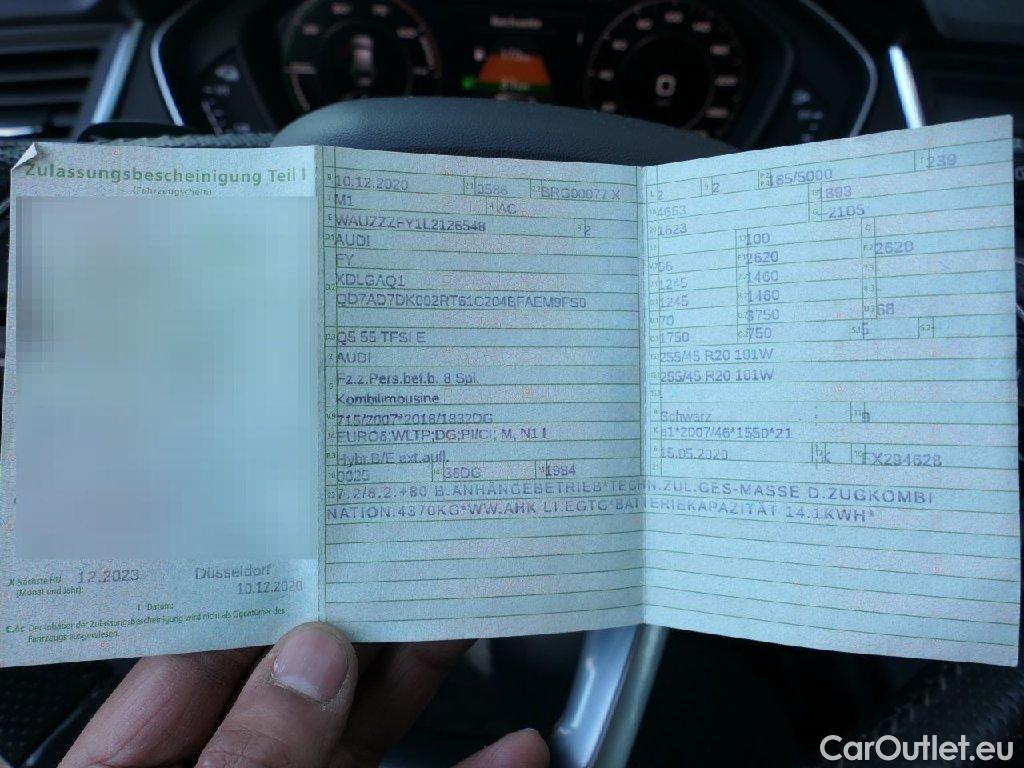 Zulassungsbescheinigung Teil I
(Fahrzeugschein)
X Nächste HU 12.2023 Düsseldorf
(Monat und Jahr):
10.12.2020
I Datum:
C.4c Der Inhaber der Zulassungsbescheinigung wird nicht als Eigentümer des
Fahrzeugs ausgewiesen.
10.12.2020 0588 BRG00077 X
M1 AC
WAUZZZFY1L2126548 2
AUDI
FY
XDLGAQ1
QD7AD7DK002RT61C204BFAEM9FS0
Q5 55 TFSI E
AUDI
Fz.z.Pers.bef.b. 8 Spl.
Kombilimousine
715/2007*2018/1832DG
EURO6;WLTP;DG;PI/CI; M, N1 I
Hybr.B/E ext.aufl.
0025 36DG 1984
L 2 2 185/5000 239
4663 1893
1623 -2105
100
66 2620 2620
1245 1460
1245 1460
70 68
1750 750 5
255/45 R20 101W
255/45 R20 101W
Schwarz 9
e1*2007/46*1550*21
15.05.2020 K FX294628
7.2/8.2:+80 B.ANHÄNGEBETRIEB*TECHN.ZUL.GES-MASSE D.ZUGKOMBI
NATION:4370KG*WW.AHK LT.EGTG*BATTERIEKAPAZITÄT 14.1KWH*
CarOutlet.eu